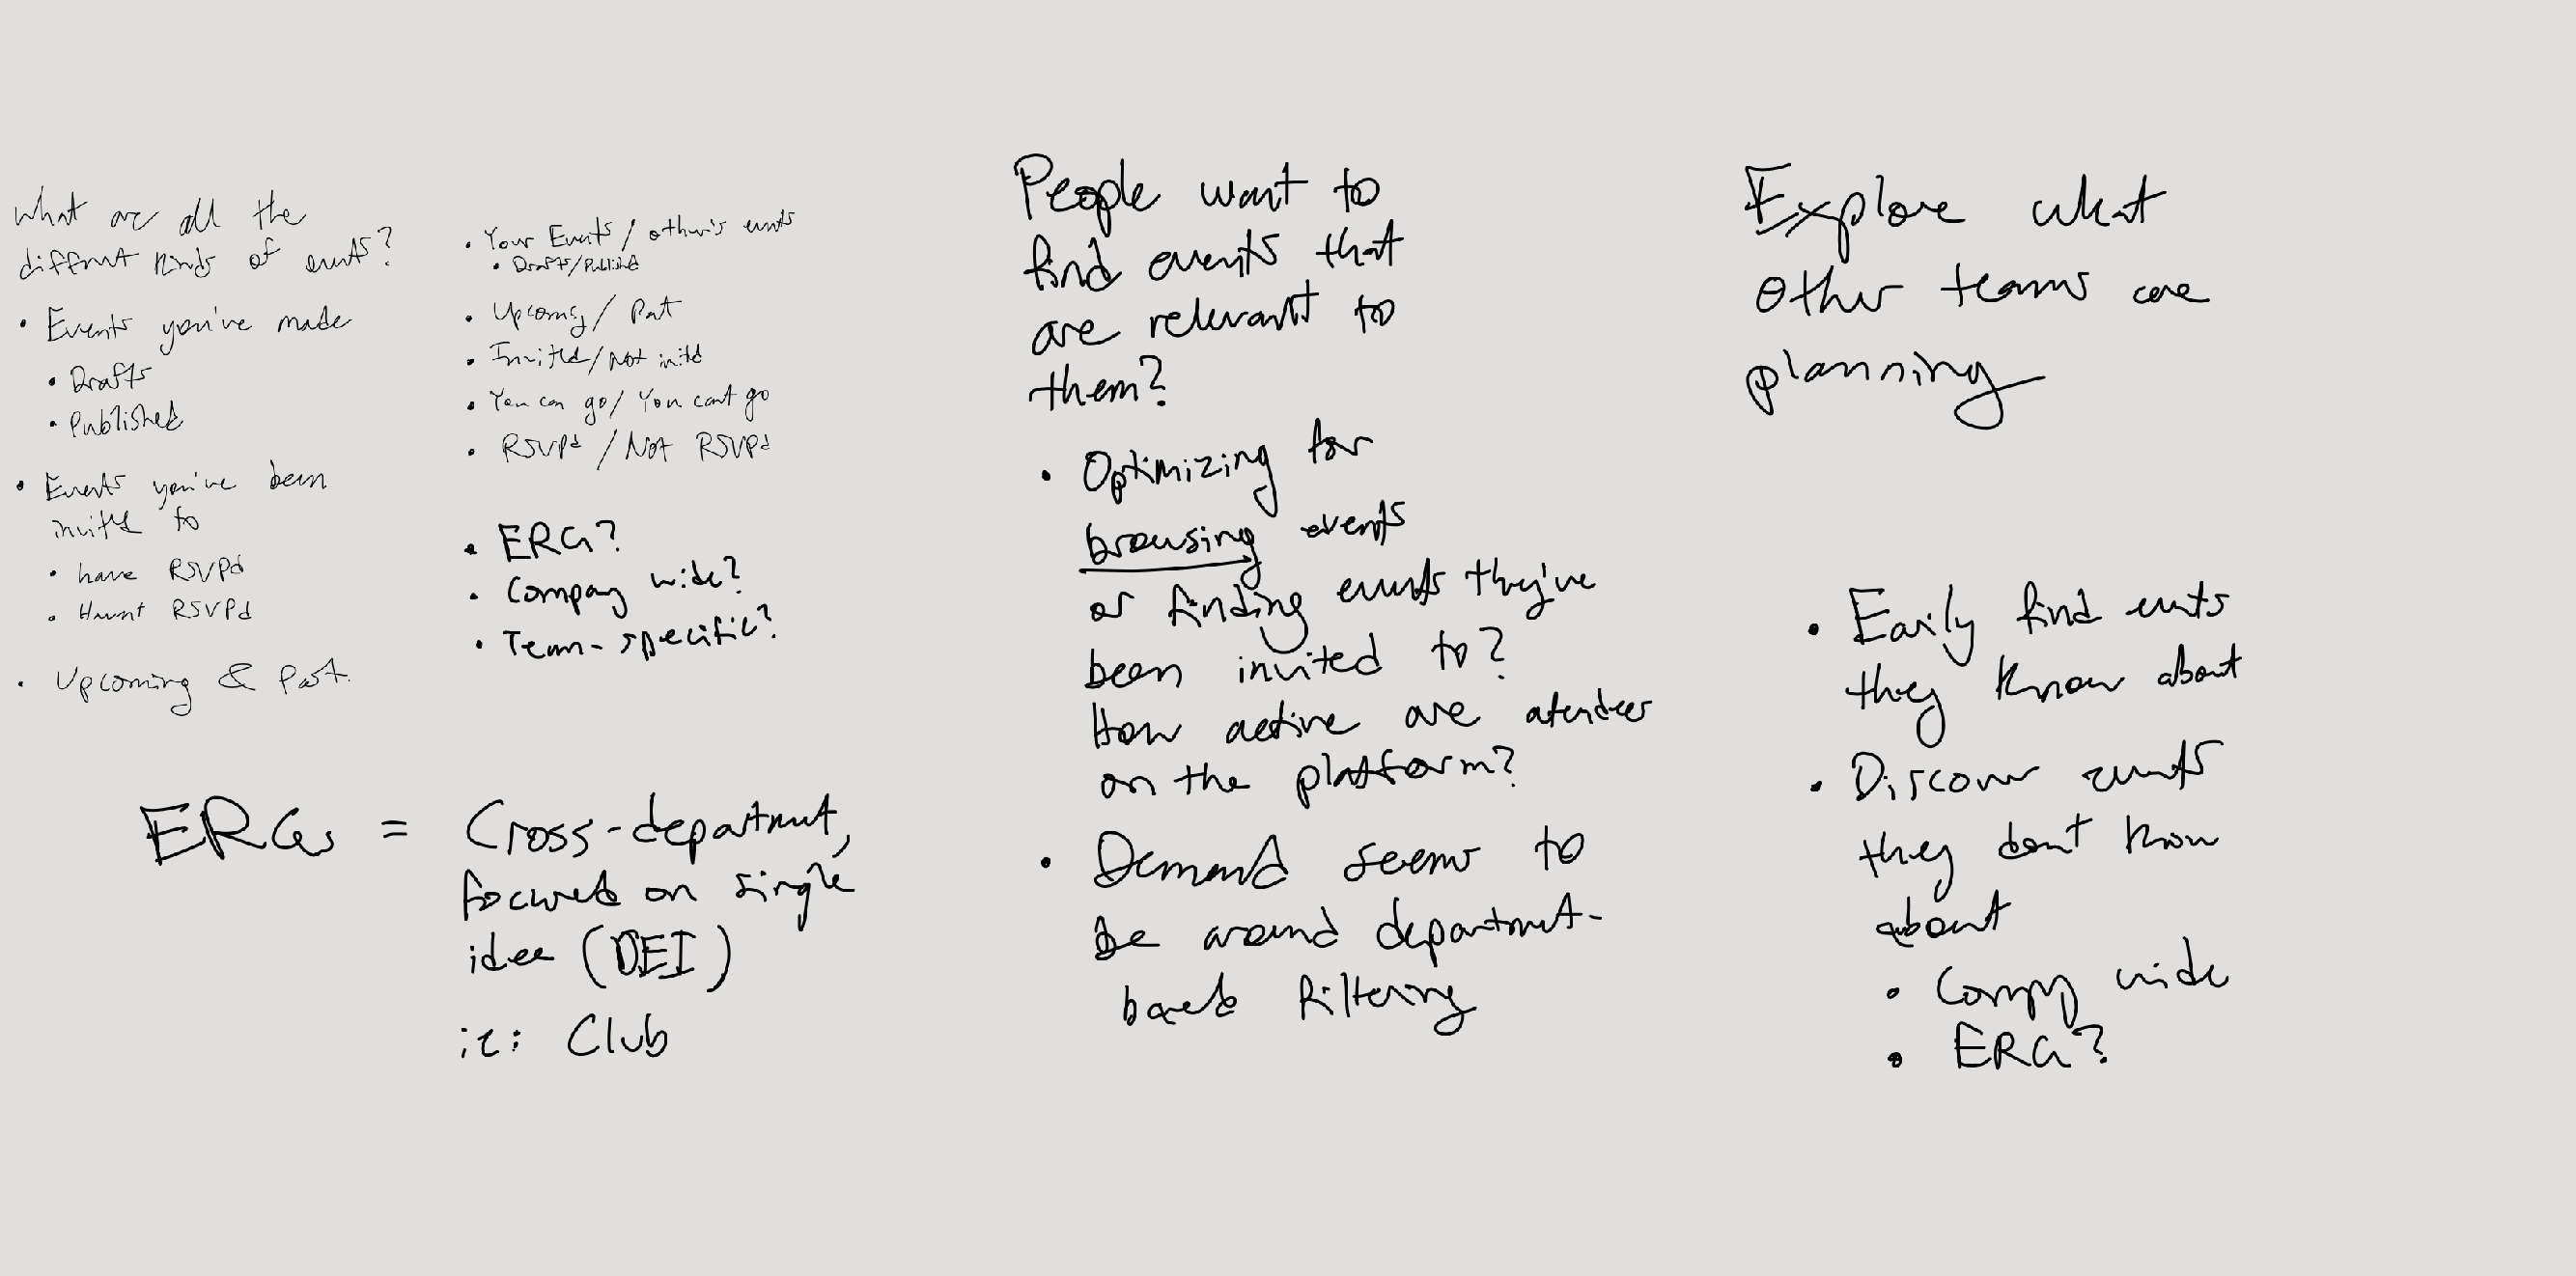 What are all the
different kinds of events?
• Events you've made
• Drafts
• Published
• Events you've been
invited to
• have RSVPd
• Havent RSVPd
• Upcoming & Past.
• Your Events / other's events
• Drafts/Published
• Upcoming / Past
• Invited / Not invited
• You can go / You cant go
• RSVPd / Not RSVPd
• ERG?
• Company wide?
• Team-specific?
ERGs = Cross-department,
focused on single
idea (DEI)
ie: Club
People want to
find events that
are relevant to
them?
• Optimizing for
browsing events
or finding events they've
been invited to?
How active are atendees
on the platform?
• Demand seems to
be around department-
based filtering
Explore what
other teams are
planning
• Easily find events
they know about
• Discover events
they dont know
about
• Company wide
• ERG?